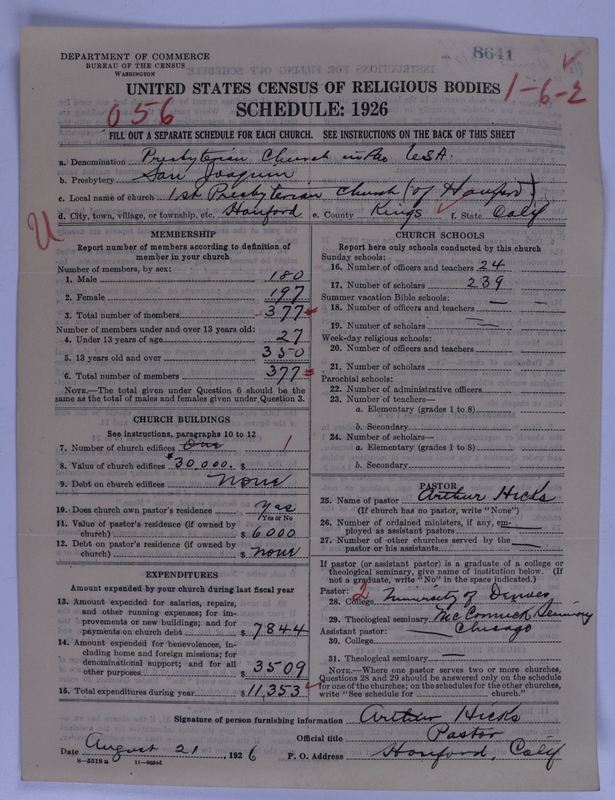 8641
DEPARTMENT OF COMMERCE
BUREAU OF THE CENSUS
WASHINGTON
UNITED STATES CENSUS OF RELIGIOUS BODIES
1-6-2
056
SCHEDULE: 1926
FILL OUT A SEPARATE SCHEDULE FOR EACH CHURCH. SEE INSTRUCTIONS ON THE BACK OF THIS SHEET
a. Denomination Presbyterian Church in the USA.
b. Presbytery San Joaquin
c. Local name of church 1st Presbyterian Church (of Hanford)
d. City, town, village, or township, etc. Hanford e. County Kings f. State Calif
U
MEMBERSHIP
Report number of members according to definition of
member in your church
Number of members, by sex:
1. Male 180
2. Female 197
3. Total number of members 377
Number of members under and over 13 years old:
4. Under 13 years of age 27
5. 13 years old and over 350
6. Total number of members 377
NOTE.—The total given under Question 6 should be
same as the total of males and females given under Question 3.
CHURCH BUILDINGS
See instructions, paragraphs 10 to 12
7. Number of church edifices One 1
8. Value of church edifices $30,000. $
9. Debt on church edifices none
10. Does church own pastor's residence yes
(Yes or No)
11. Value of pastor's residence (if owned by
church) $ 6000
12. Debt on pastor's residence (if owned by
church) $ none
EXPENDITURES
Amount expended by your church during last fiscal year
13. Amount expended for salaries, repairs,
and other running expenses; for im-
provements or new buildings; and for
payments on church debt $ 7844
14. Amount expended for benevolences, in-
cluding home and foreign missions; for
denominational support; and for all
other purposes $ 3509
15. Total expenditures during year $ 11,353
CHURCH SCHOOLS
Report here only schools conducted by this church
Sunday schools:
16. Number of officers and teachers 24
17. Number of scholars 239
Summer vacation Bible schools:
18. Number of officers and teachers —
19. Number of scholars —
Week-day religious schools:
20. Number of officers and teachers
21. Number of scholars
Parochial schools:
22. Number of administrative officers
23. Number of teachers—
a. Elementary (grades 1 to 8)
b. Secondary
24. Number of scholars—
a. Elementary (grades 1 to 8)
b. Secondary
PASTOR
25. Name of pastor Arthur Hicks
(If church has no pastor, write "None")
26. Number of ordained ministers, if any, em-
ployed as assistant pastors —
27. Number of other churches served by the
pastor or his assistants —
If pastor (or assistant pastor) is a graduate of a college or
theological seminary, give name of institution below. (If
not a graduate, write "No" in the space indicated.)
Pastor: 2
28. College University of Denver
29. Theological seminary McCormick Seminary
Assistant pastor: — Chicago
30. College
31. Theological seminary —
NOTE.—Where one pastor serves two or more churches,
Questions 28 and 29 should be answered only on the schedule
for one of the churches; on the schedules for the other churches,
write "See schedule for church."
Signature of person furnishing information Arthur Hicks
Official title Pastor
Date August 21, 1926 P. O. Address Hanford, Calif
8—5518a